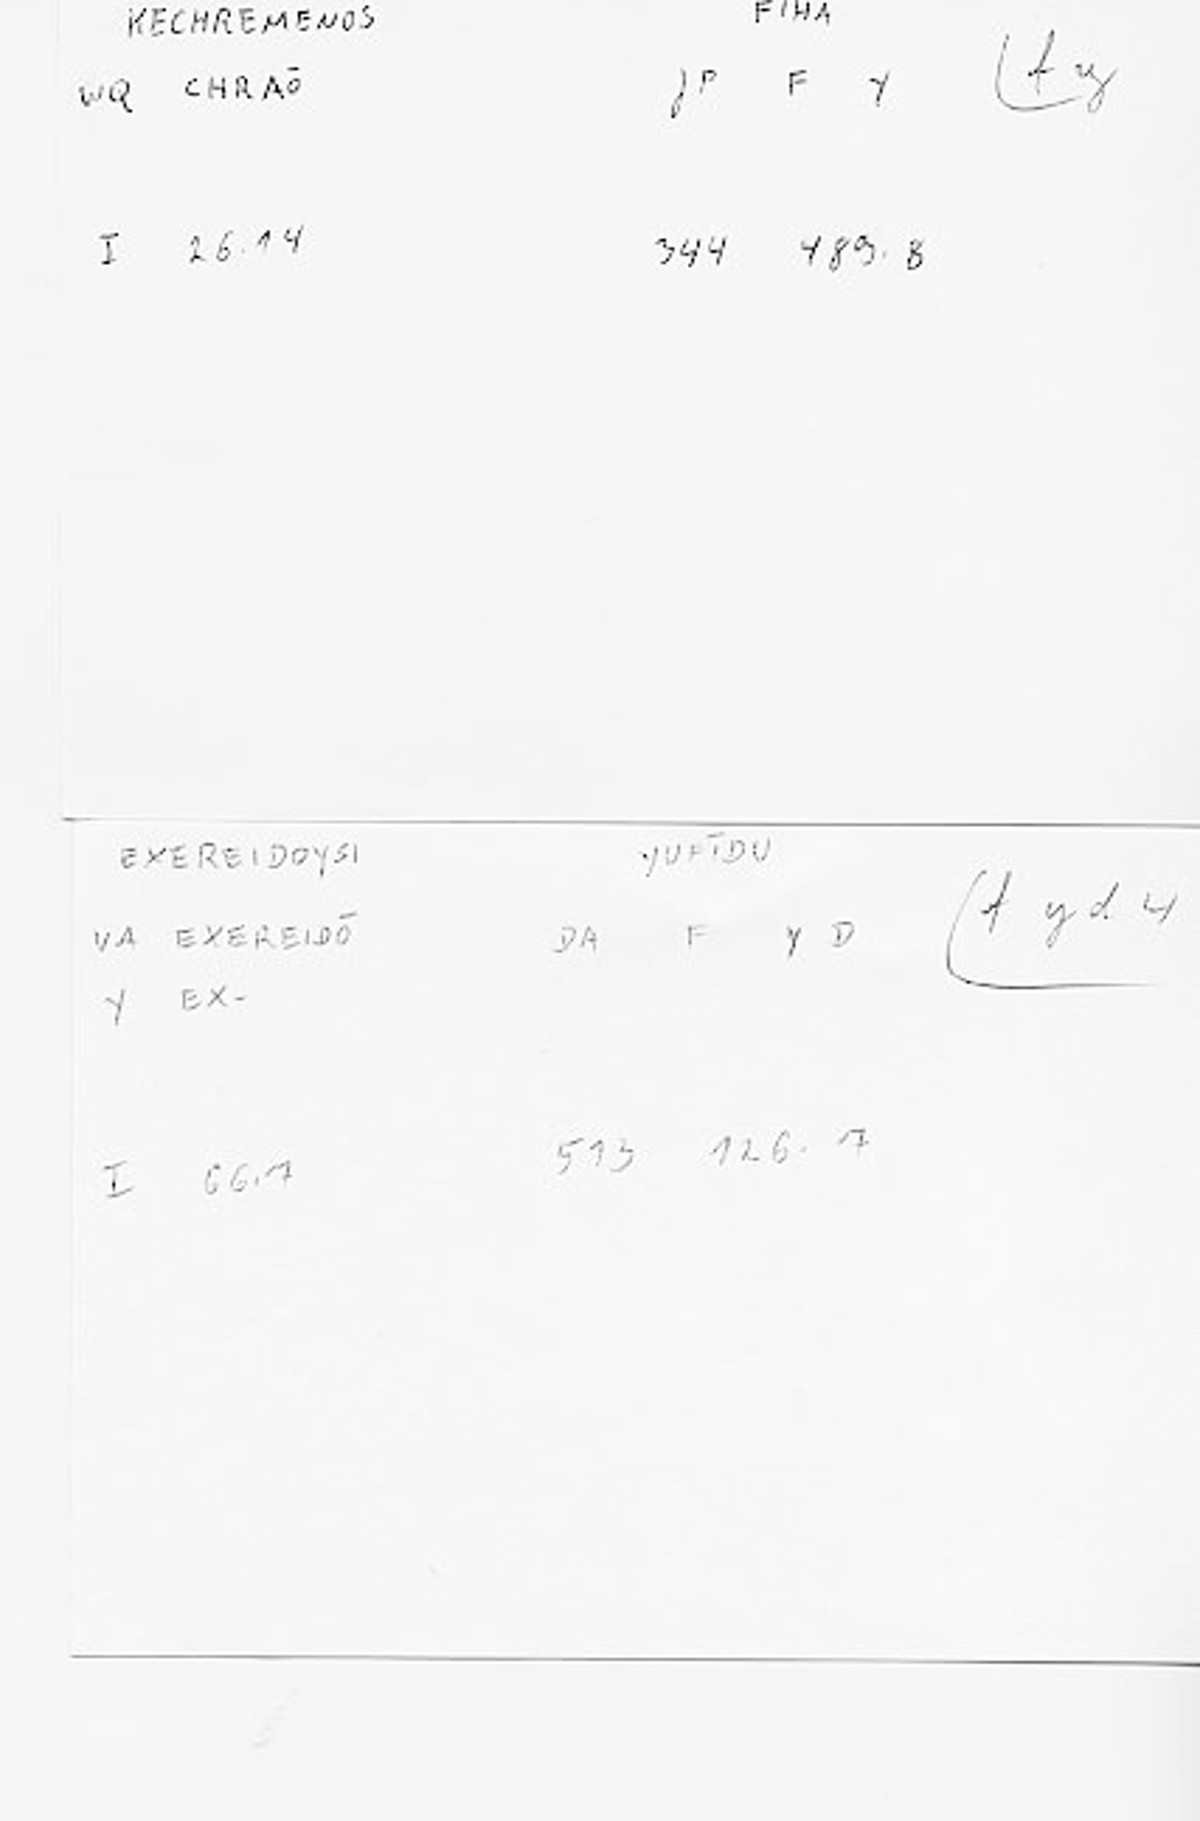 KECHREMENOS FIHA
WQ CHRAŌ JP F Y f y
I 26.14 344 489.8
EXEREIDOYSI YUFĪDU
VA EXEREIDŌ DA F Y D f y d u
Y EX-
I 66.7 513 126.7